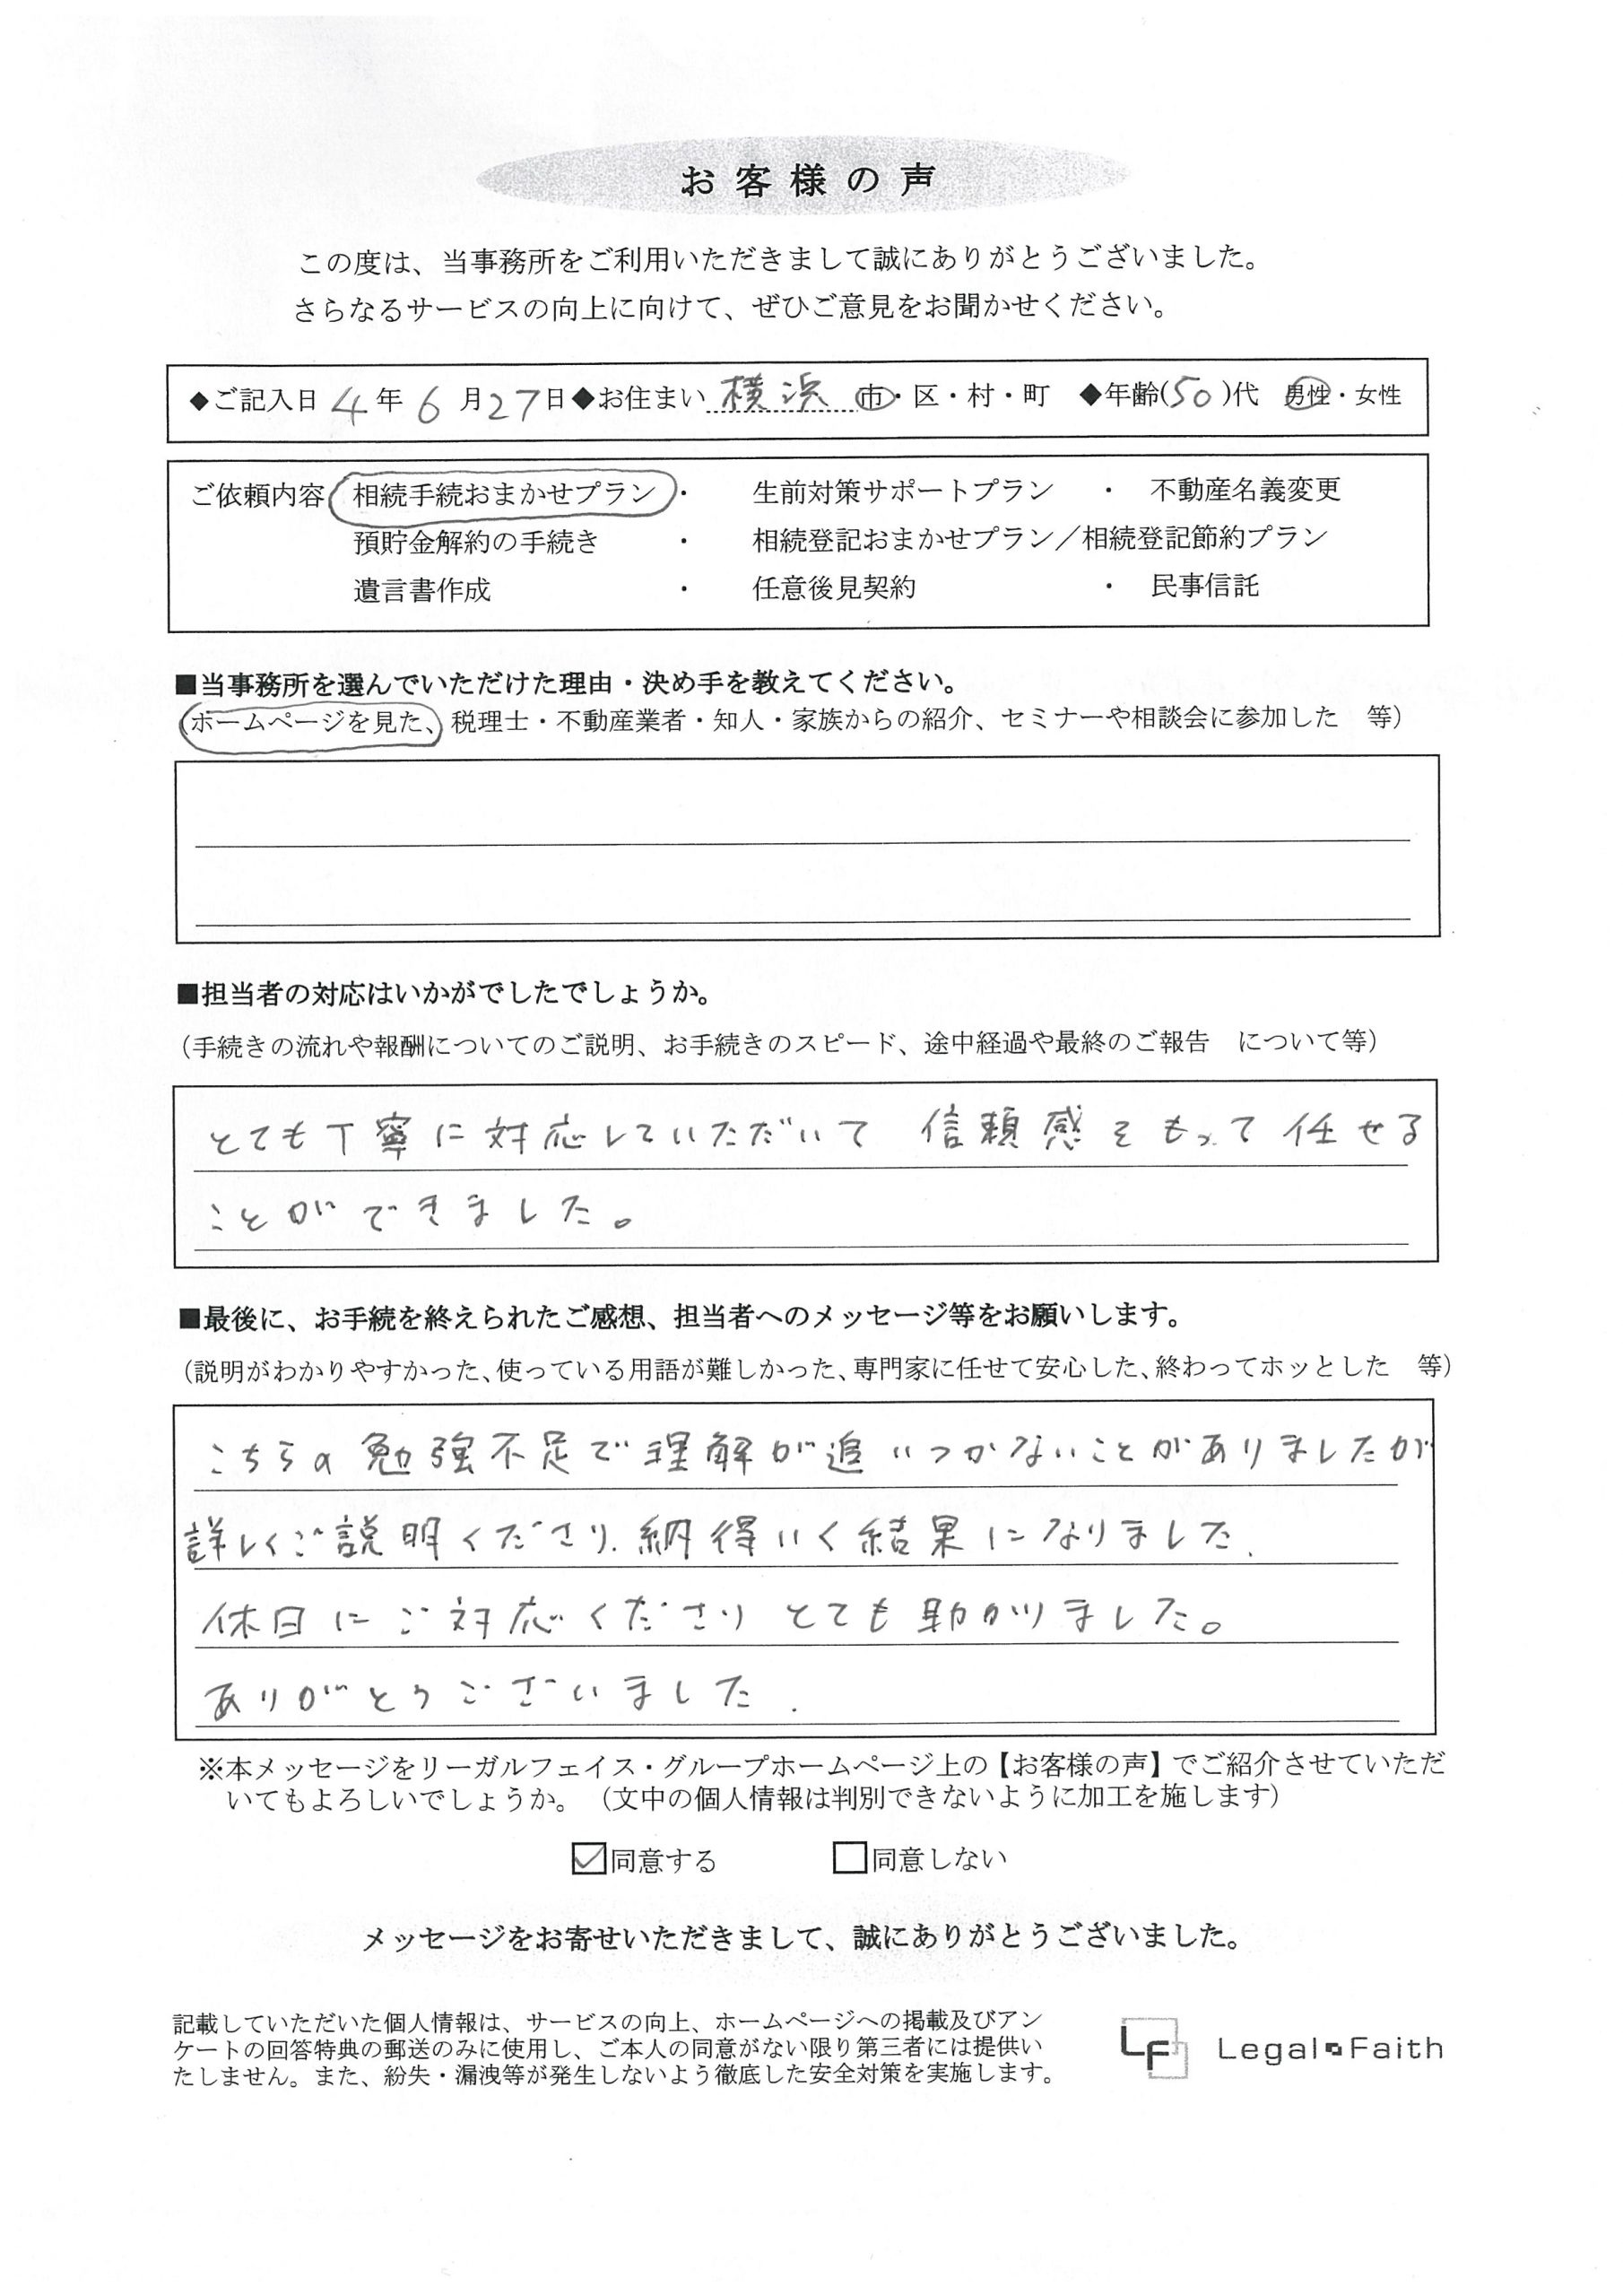 お客様の声
この度は、当事務所をご利用いただきまして誠にありがとうございました。
さらなるサービスの向上に向けて、ぜひご意見をお聞かせください。
◆ご記入日 4 年 6 月 27 日◆お住まい 横浜 市・区・村・町 ◆年齢(50)代 男性・女性
ご依頼内容 相続手続おまかせプラン ・ 生前対策サポートプラン ・ 不動産名義変更
預貯金解約の手続き ・ 相続登記おまかせプラン／相続登記節約プラン
遺言書作成 ・ 任意後見契約 ・ 民事信託
■当事務所を選んでいただけた理由・決め手を教えてください。
(ホームページを見た、税理士・不動産業者・知人・家族からの紹介、セミナーや相談会に参加した　等)
■担当者の対応はいかがでしたでしょうか。
(手続きの流れや報酬についてのご説明、お手続きのスピード、途中経過や最終のご報告　について等)
とても丁寧に対応していただいて 信頼感をもって任せる
ことができました。
■最後に、お手続を終えられたご感想、担当者へのメッセージ等をお願いします。
(説明がわかりやすかった、使っている用語が難しかった、専門家に任せて安心した、終わってホッとした　等)
こちらの勉強不足で理解が追いつかないことがありましたが
詳しくご説明くださり. 納得いく結果になりました.
休日にご対応くださり とても助かりました。
ありがとうございました.
※本メッセージをリーガルフェイス・グループホームページ上の【お客様の声】でご紹介させていただ
いてもよろしいでしょうか。（文中の個人情報は判別できないように加工を施します）
☑同意する　□同意しない
メッセージをお寄せいただきまして、誠にありがとうございました。
記載していただいた個人情報は、サービスの向上、ホームページへの掲載及びアン
ケートの回答特典の郵送のみに使用し、ご本人の同意がない限り第三者には提供い
たしません。また、紛失・漏洩等が発生しないよう徹底した安全対策を実施します。
LF Legal Faith